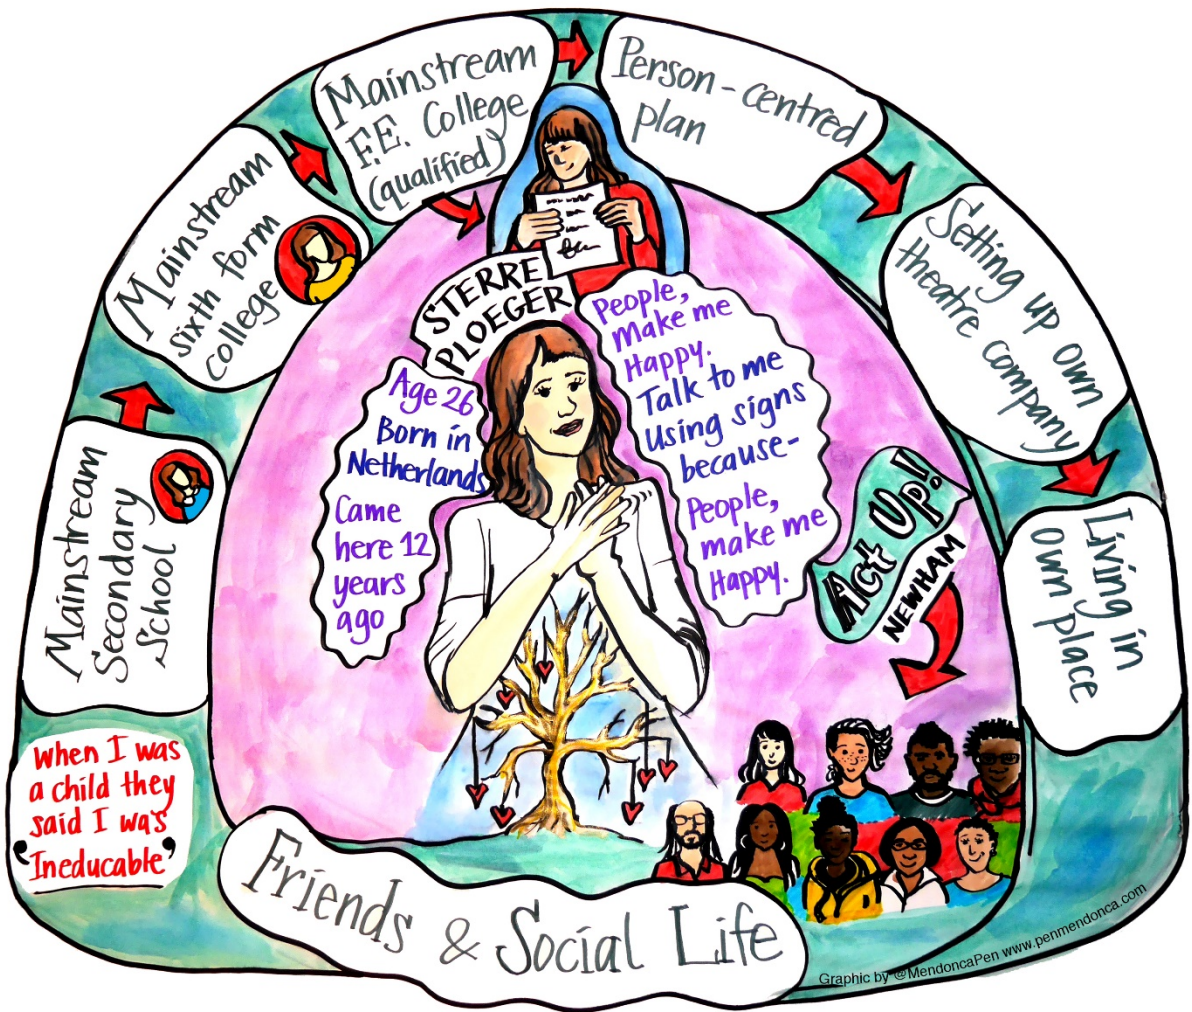 When I was
a child they
said I was
'Ineducable'
Mainstream
Secondary
School
Mainstream
sixth form
college
Mainstream
F.E. College
(qualified)
Person-centred
plan
Setting up own
theatre company
Living in
own place
STERRE
PLOEGER
Age 26
Born in
Netherlands
Came
here 12
years
ago
People,
make me
Happy.
Talk to me
using signs
because-
People,
make me
Happy.
Act Up!!
NEWHAM
Friends & Social Life
Graphic by @MendoncaPen www.penmendonca.com